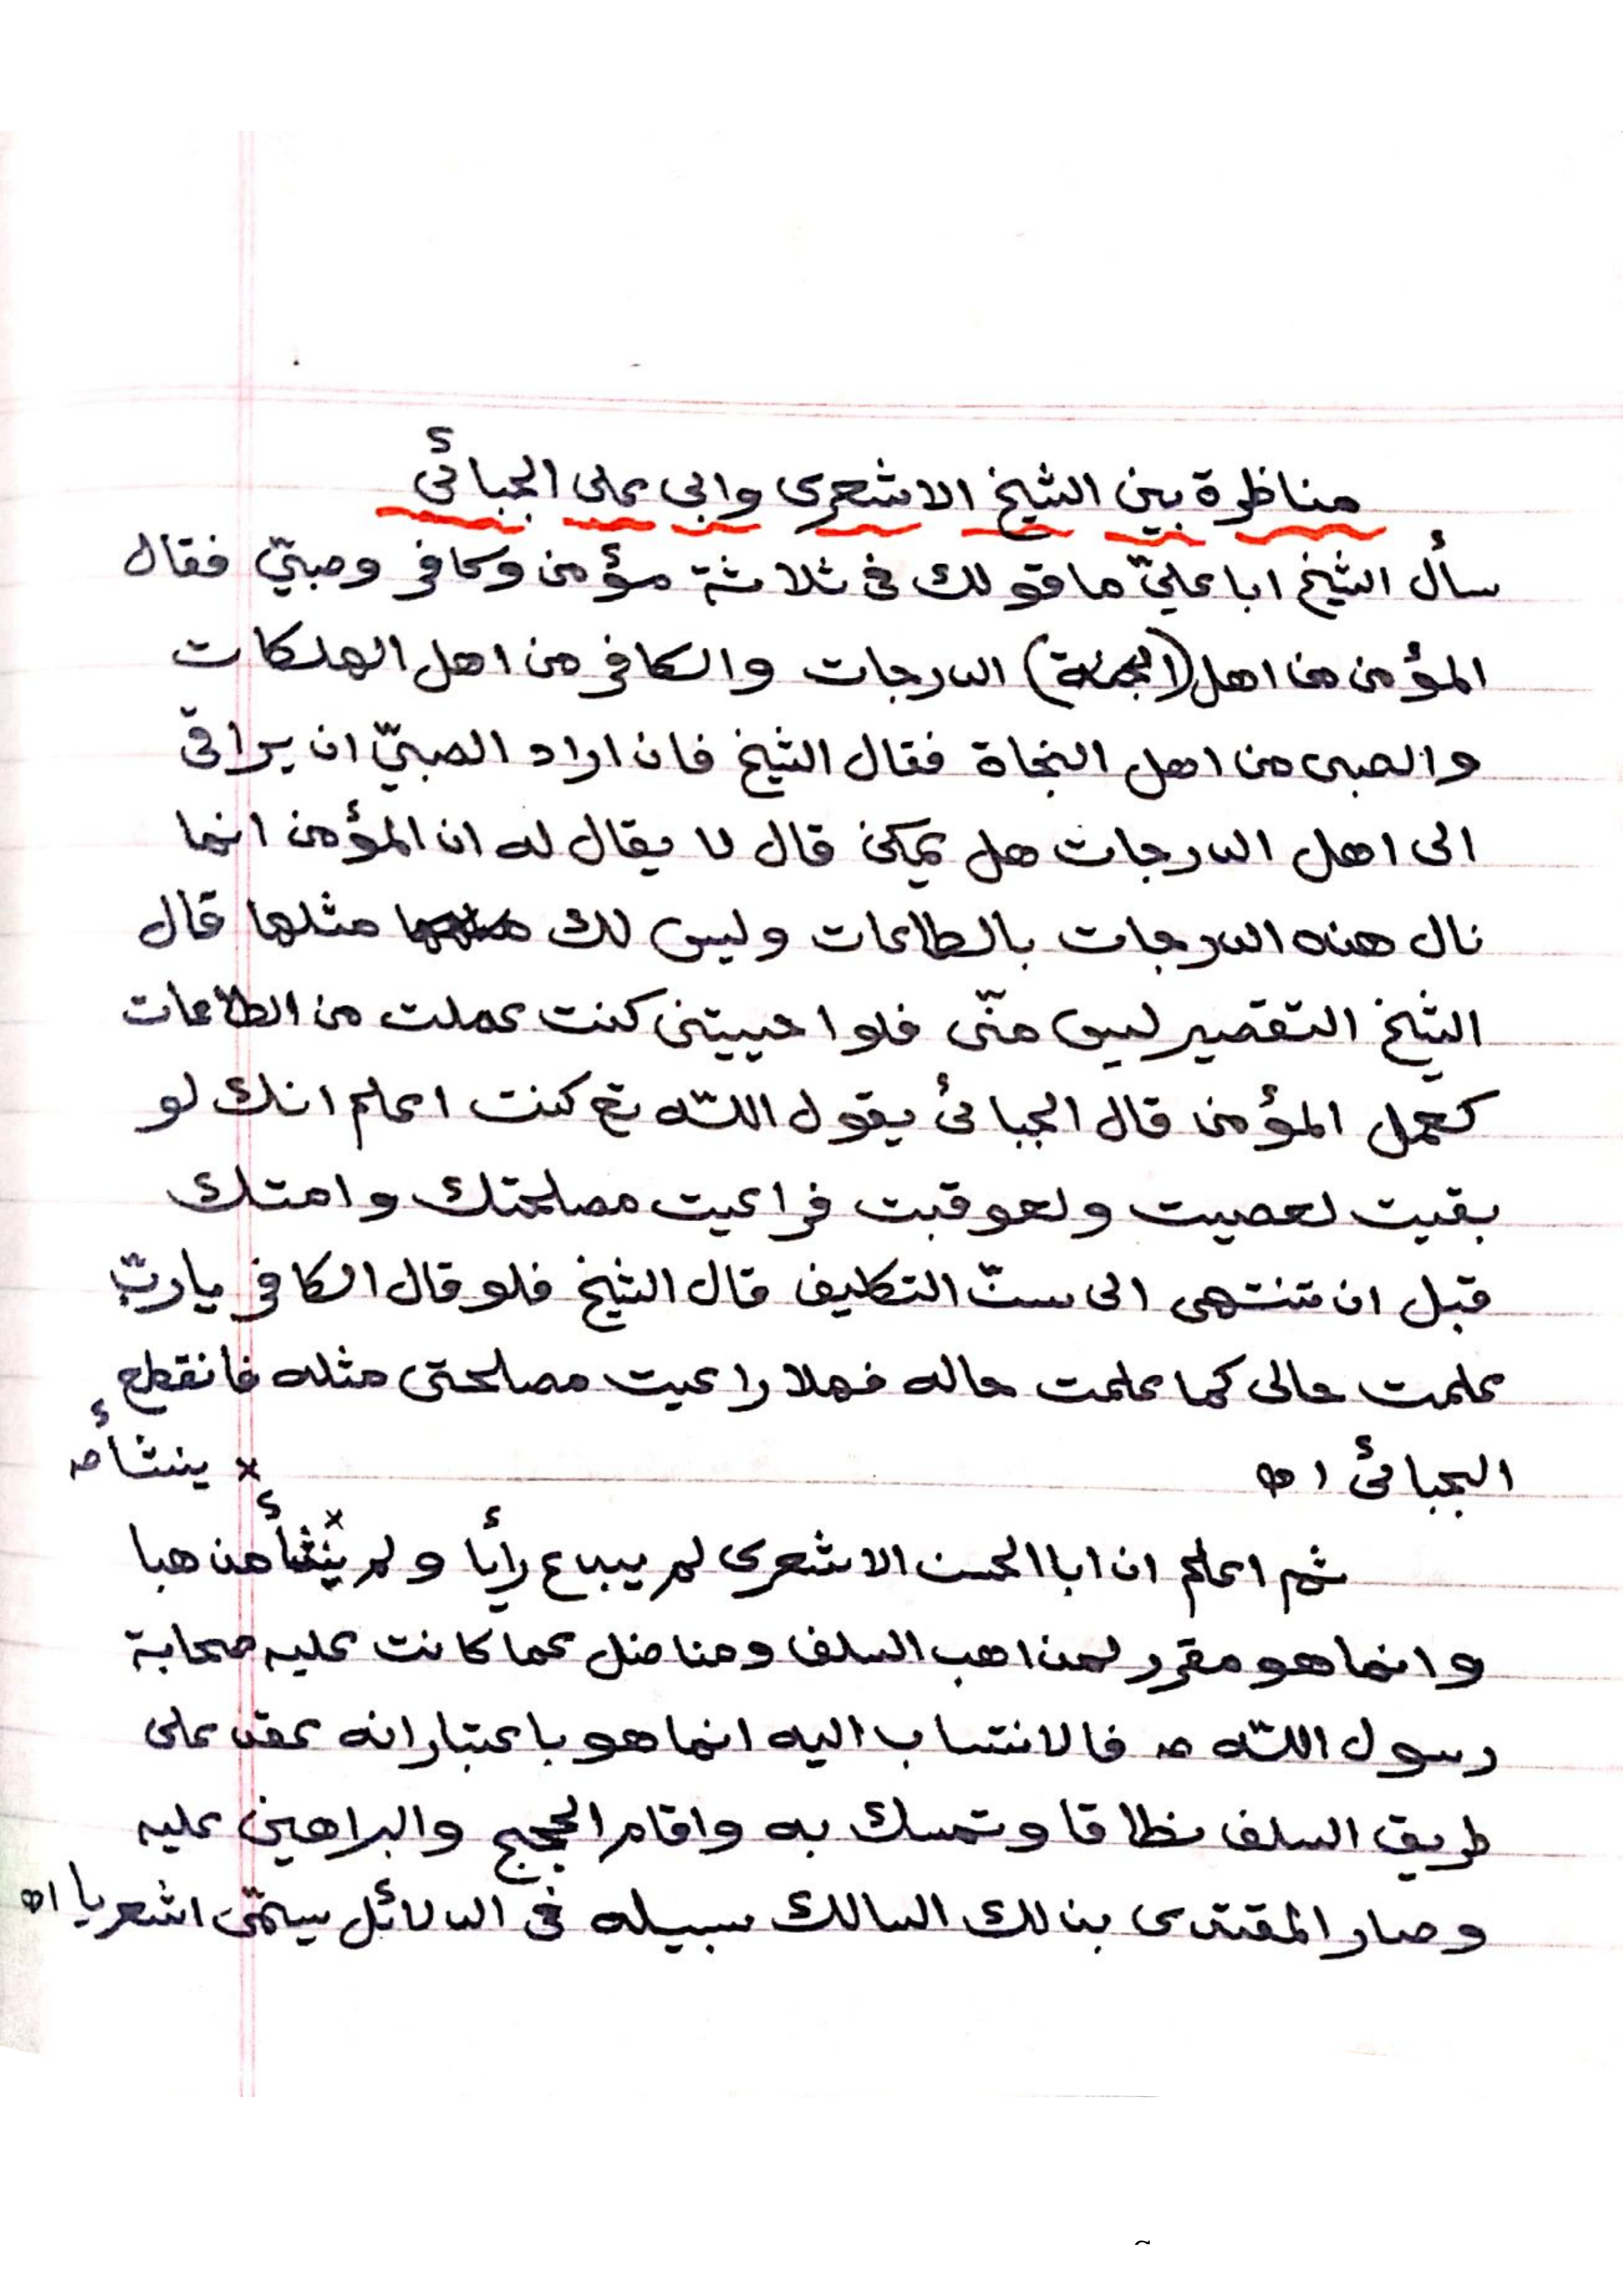 مناظرة بين الشيخ الاشعرى وابى على الجبائى
سأل الشيخ ابا علىّ ما قولك فى ثلاثة مؤمن وكافر وصبىّ فقال
المؤمن من اهل (الجنة) الدرجات والكافر من اهل الهلكات
والصبى من اهل النجاة فقال الشيخ فان اراد الصبىّ ان يراقى
الى اهل الدرجات هل يمكن قال لا يقال له ان المؤمن انما
نال هذه الدرجات بالطاعات وليس لك مثلها قال
الشيخ التقصير ليس منّى فلو احييتنى كنت عملت من الطاعات
كعمل المؤمن قال الجبائى يقول اللّه تع كنت اعلم انك لو
بقيت لعصيت ولعوقبت فراعيت مصلحتك وامتك
قبل ان تنتهى الى سنّ التكليف قال الشيخ فلو قال الكافر يا ربّ
علمت حالى كما علمت حاله فهلا راعيت مصلحتى مثله فانقطع
الجبائى اه
× ينشأ صـ
ثم اعلم ان ابا الحسن الاشعرى لم يبدع رأيا ولم يُنشأ× مذهبا
وانما هو مقرر لمذاهب السلف ومناضل عما كانت عليه صحابة
رسول اللّه صـ فالانتساب اليه انما هو باعتبار انه عقد على
طريق السلف نطاقا وتمسك به واقام الحجج والبراهين عليه
وصار المقتدى بذلك السالك سبيله فى الدلائل يسمّى اشعريا اه